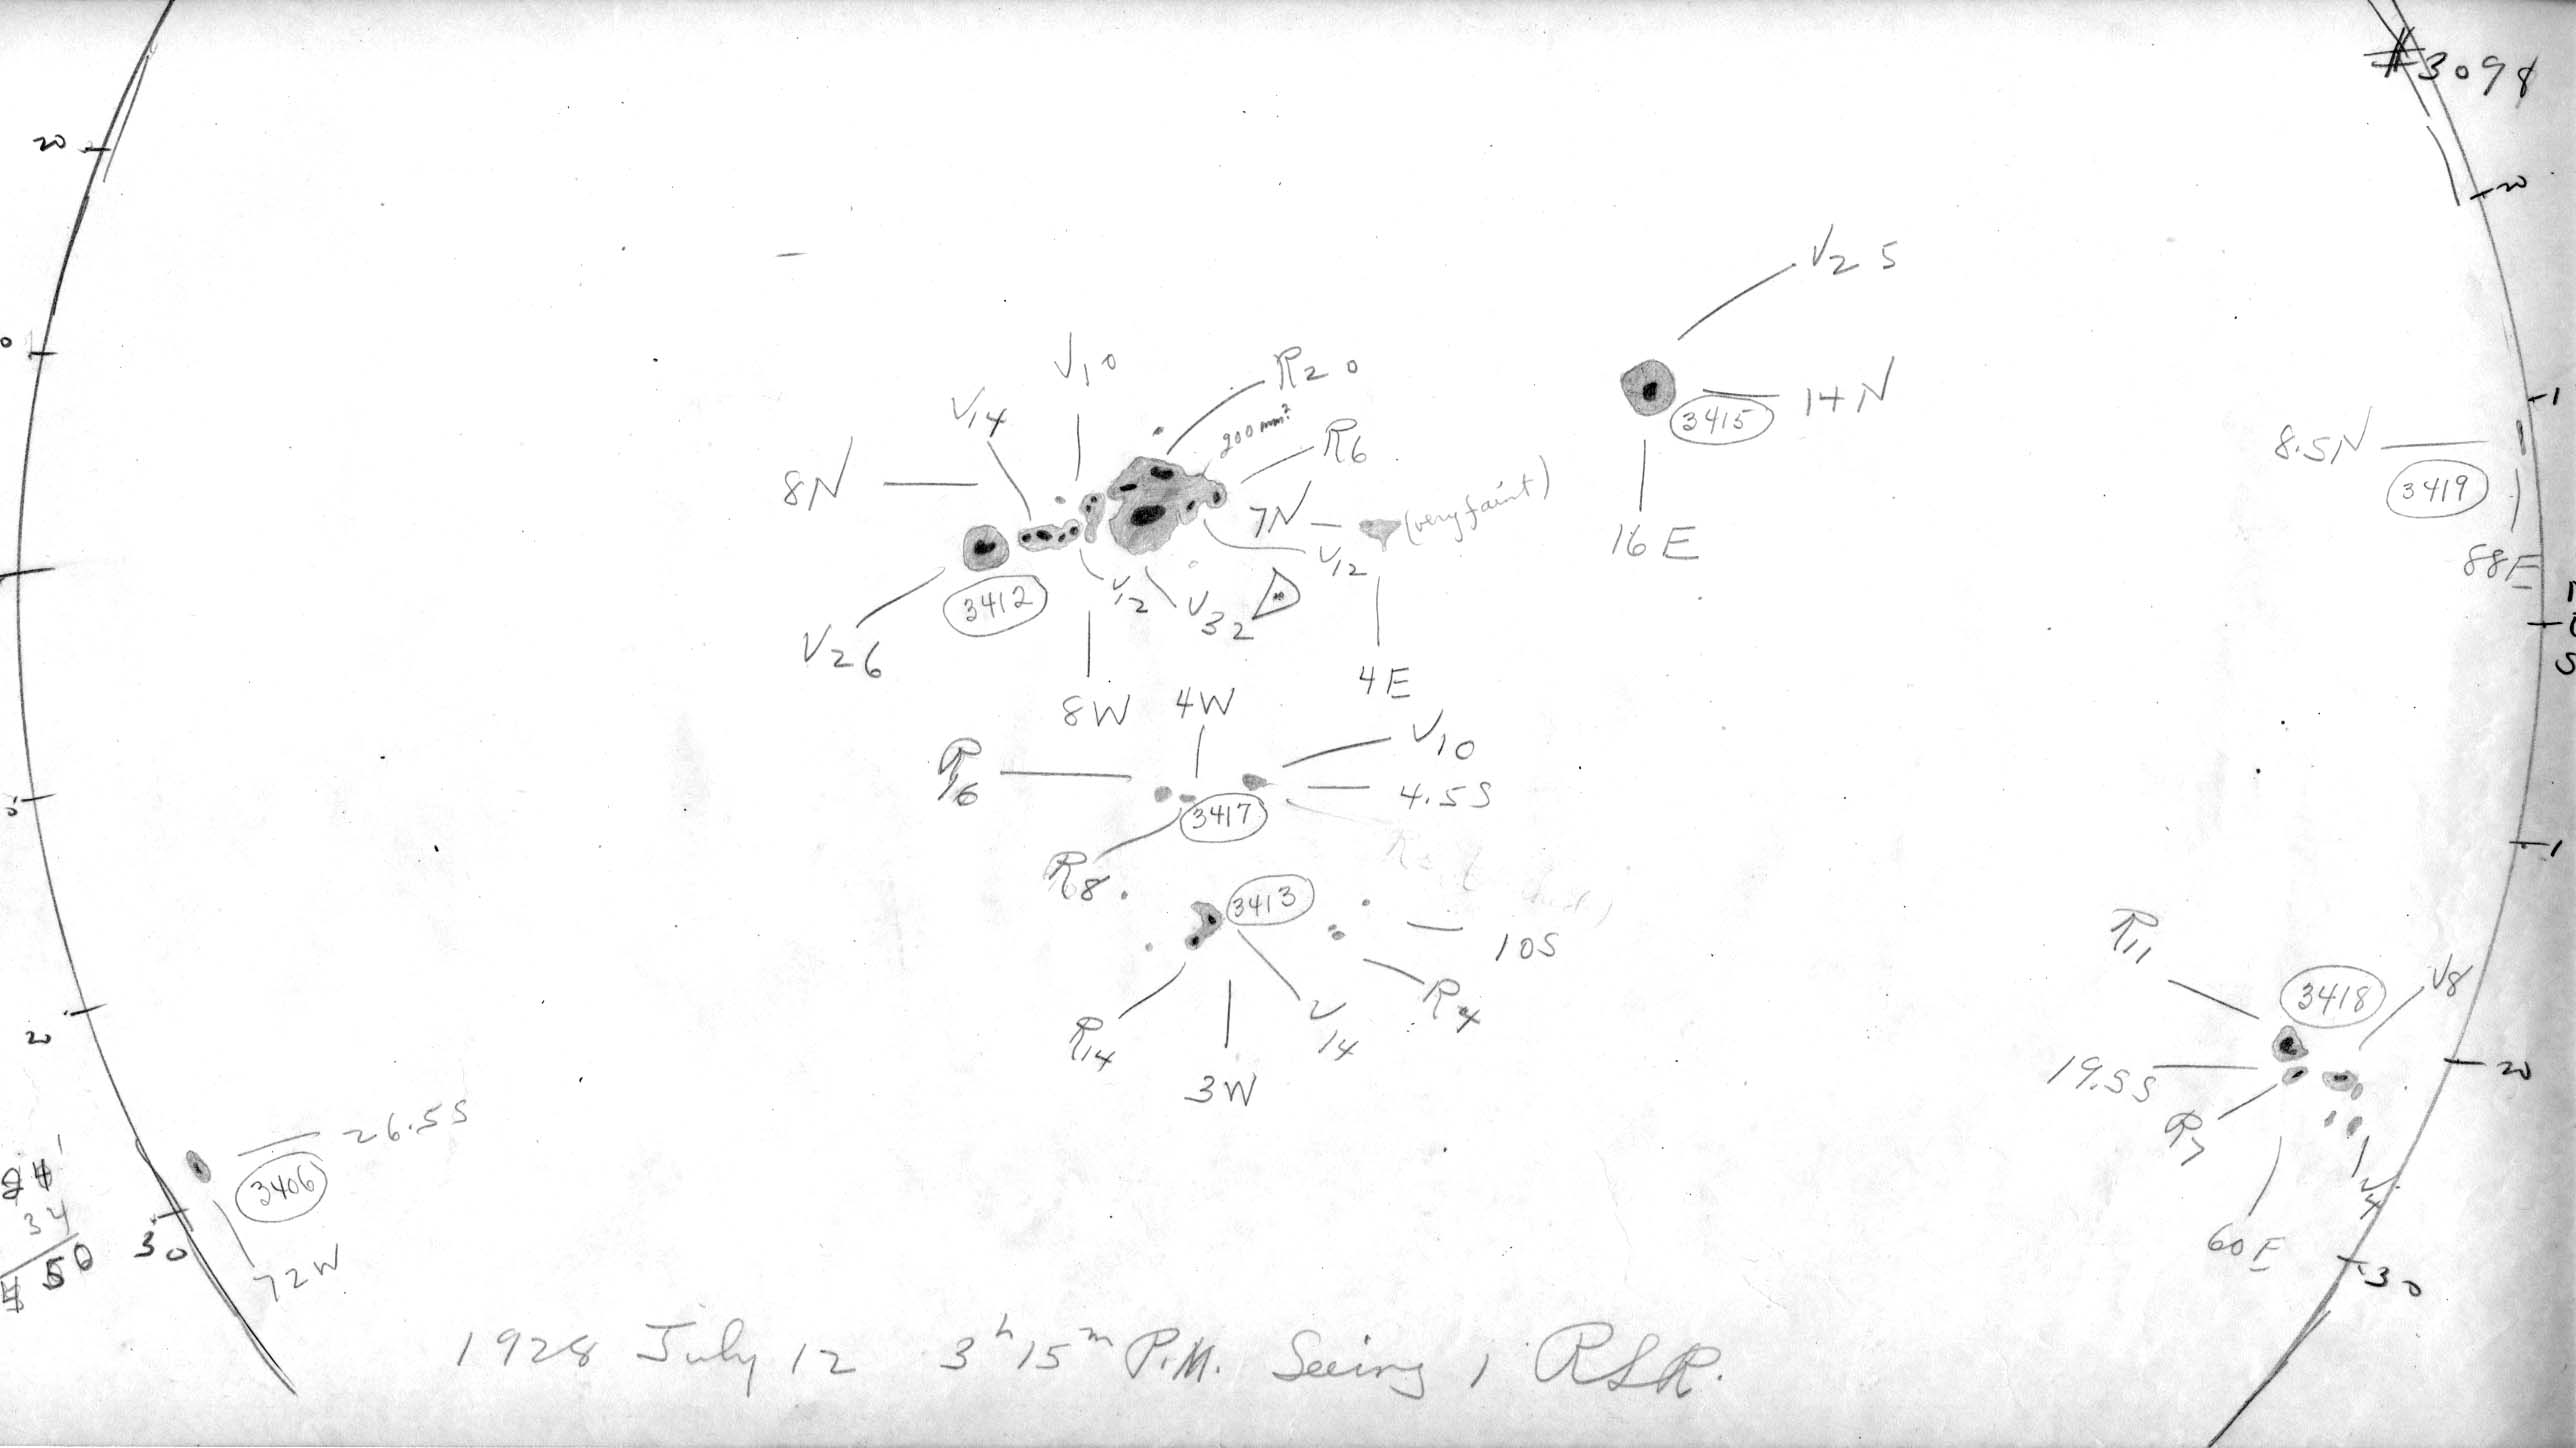 #3098
20
20
V25
V10
R20
V14
200 mm²
14N
3415
1
0
R6
8.5N
8N
3419
7N
(very faint)
V12
16E
88E
3412
V2
V32
N
0
S
V26
4E
8W
4W
V10
R6
4.5S
3417
R8
1
3413
10S
R11
V8
R4
3418
R14
V14
20
20
19.5S
3W
R7
26.5S
24
3406
34
V4
50
30
60E
72W
30
1928 July 12 3h 15m P.M. Seeing 1 RSR.